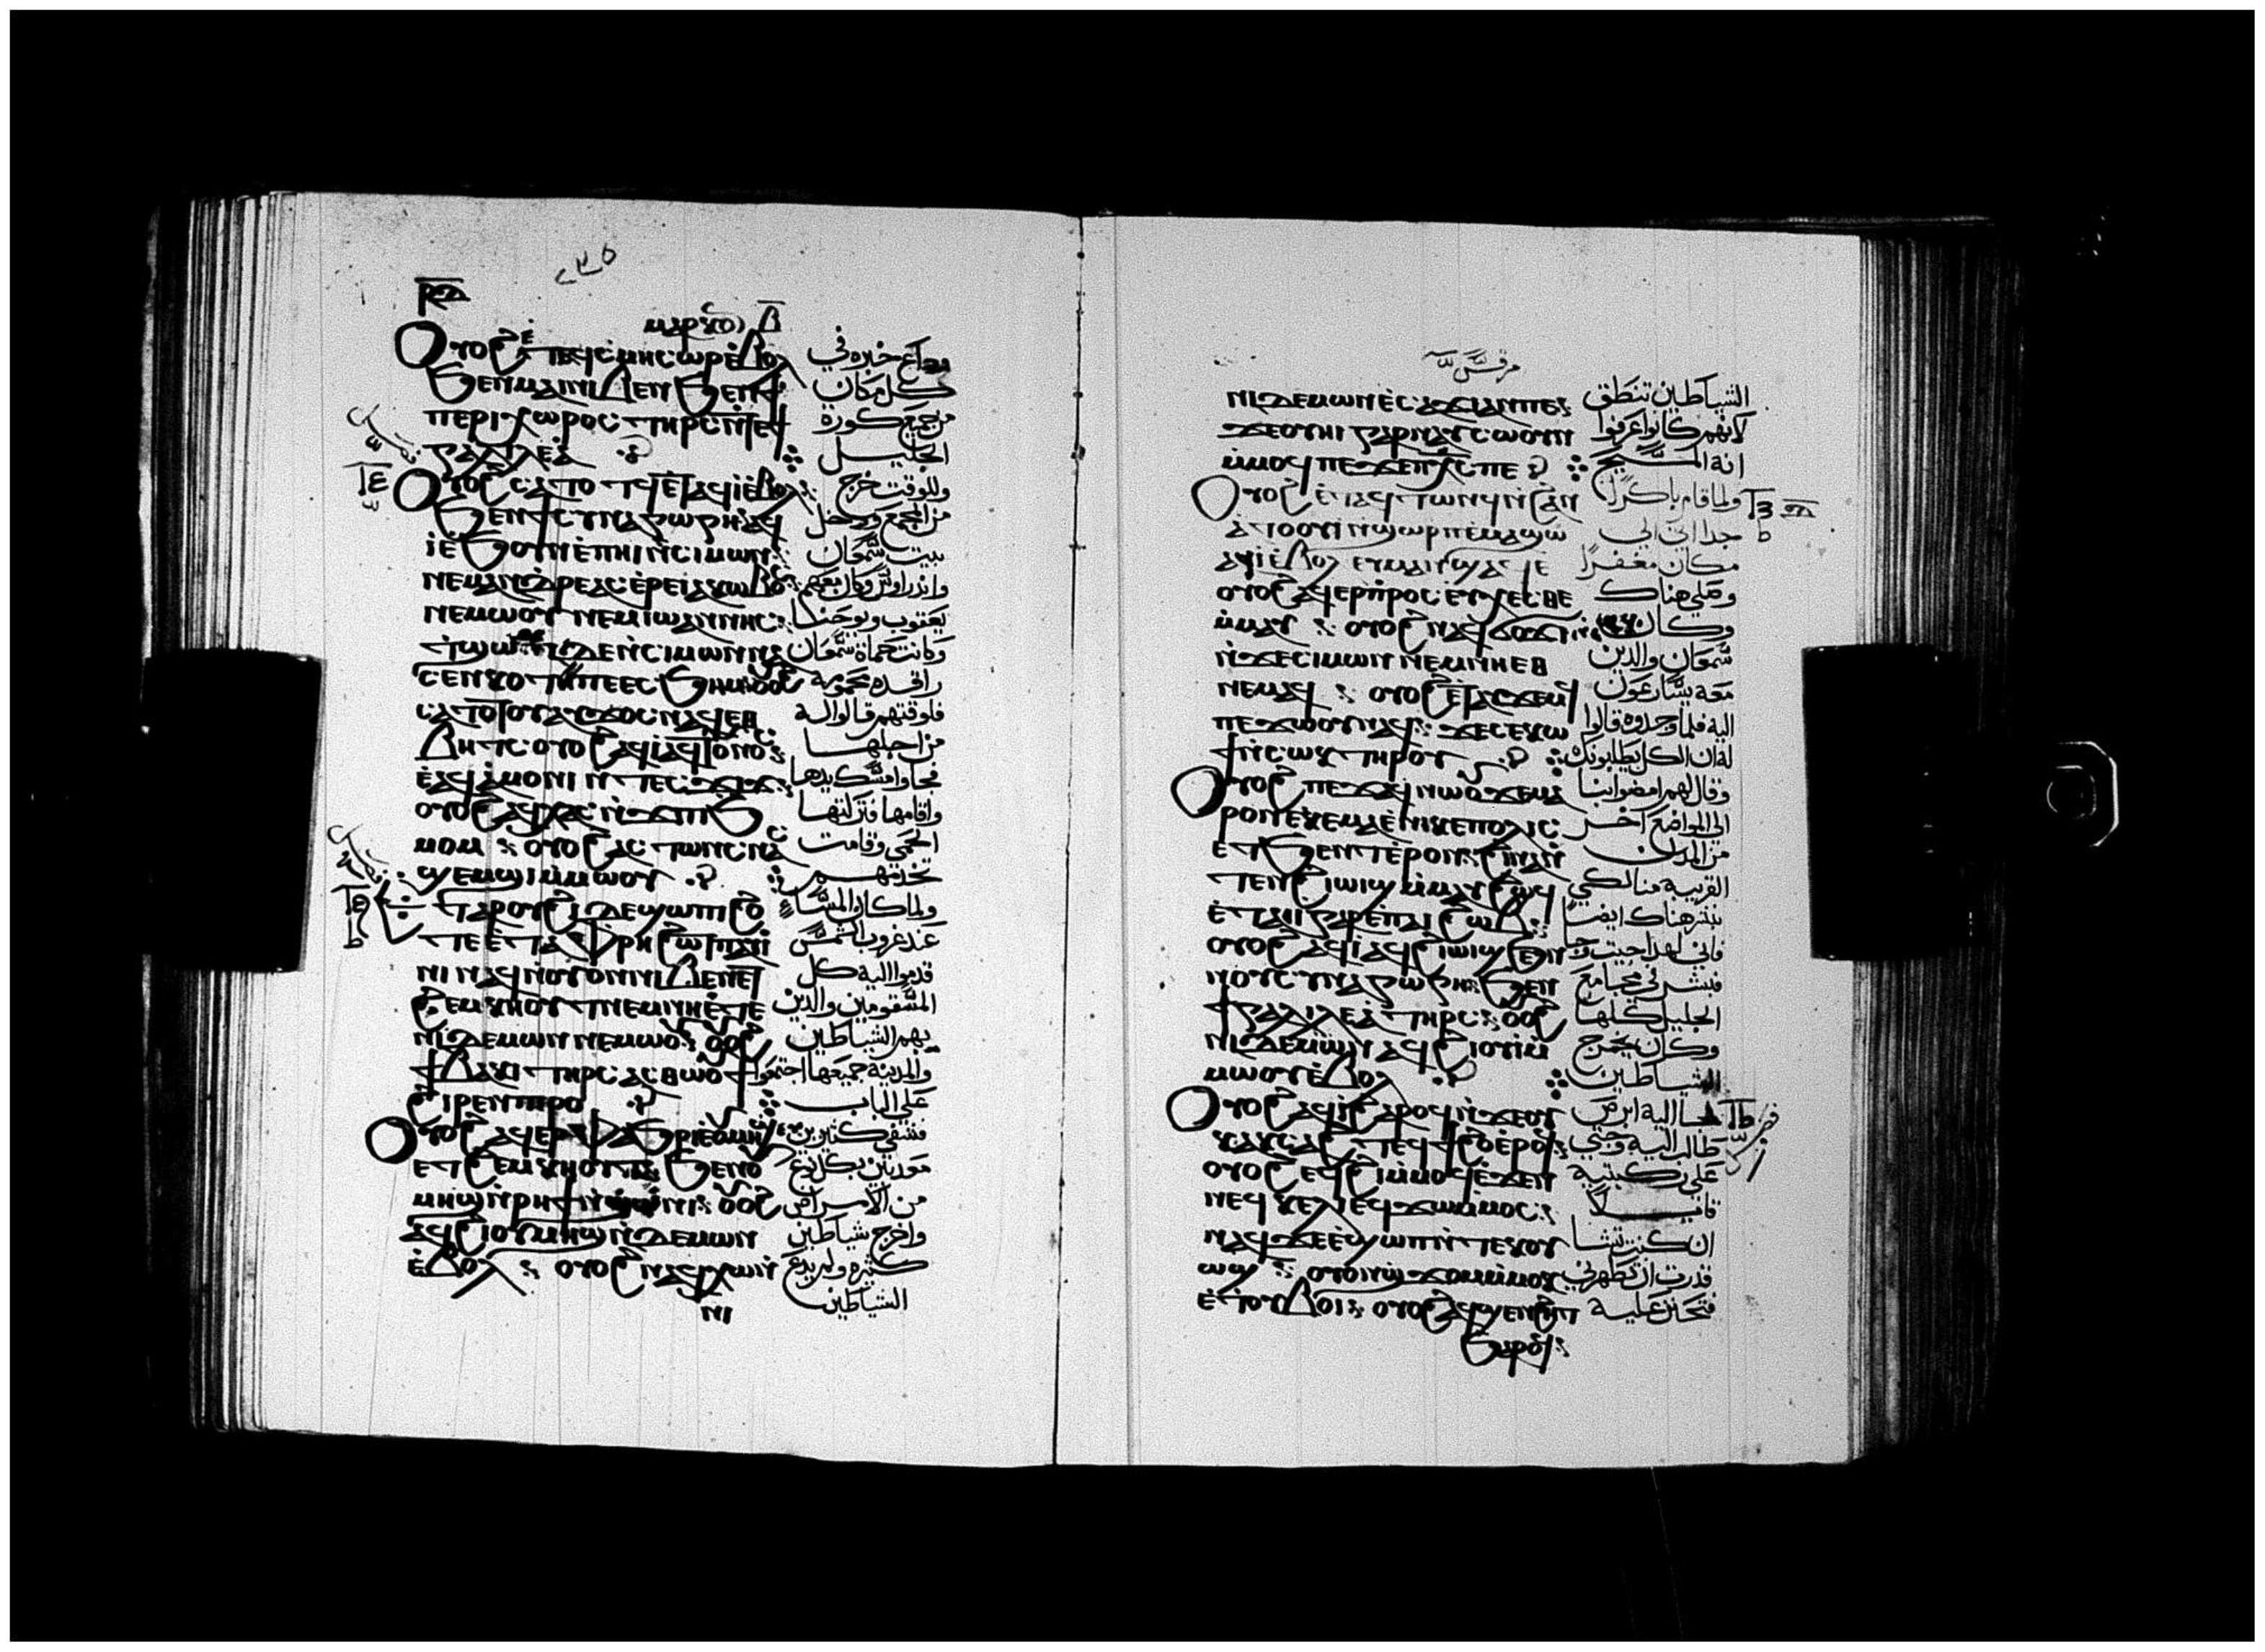 ٢٣٥
ⲟⲩⲟϩ ⲉⲧⲉϥⲥⲙⲏ ⲥⲱⲣ ⲉⲃⲟⲗ ذاع خبره في
ϧⲉⲛ ⲙⲁⲓ ⲛⲓⲃⲉⲛ ϧⲉⲛ ϯ كل مكان
ⲡⲉⲣⲓⲭⲱⲣⲟⲥ ⲧⲏⲣⲥ ⲛⲧⲉϯ من جميع كورة
ⲅⲁⲗⲓⲗⲉⲁ الجليل
ⲟⲩⲟϩ ⲥⲁⲧⲟⲧϥ ⲉⲧⲁϥⲓ ⲉⲃⲟⲗ وللوقت خرج
ϧⲉⲛ ϯⲥⲩⲛⲁⲅⲱⲅⲏ ⲁϥ من المجمع ودخل
ⲓ ⲉϧⲟⲩⲛ ⲉⲡⲏⲓ ⲛⲥⲓⲙⲱⲛ بيت سمعان
ⲛⲉⲙ ⲁⲛⲇⲣⲉⲁⲥ ⲉⲣⲉ ⲓⲁⲕⲱⲃⲟⲥ واندراوس وكان معهم
ⲛⲉⲙⲱⲟⲩ ⲛⲉⲙ ⲓⲱⲁⲛⲛⲏⲥ يعقوب ويوحنا
ϯϣⲱⲙⲓ ⲇⲉ ⲛⲥⲓⲙⲱⲛ ⲛⲁ وكانت حماة سمعان
ⲥⲉⲛⲕⲟⲧ ⲡⲉ ⲉⲥϧⲏⲙ ⲟⲩⲟϩ راقده محمومة
ⲥⲁⲧⲟⲧⲟⲩ ⲁⲩϫⲟⲥ ⲛⲁϥ ⲉⲑ فلوقتهم قالوا له
ⲃⲏⲧⲥ ⲟⲩⲟϩ ⲁϥⲓ ⲁϥⲧⲟⲩⲛⲟⲥ من اجلها
ⲉⲁϥⲁⲙⲟⲛⲓ ⲛⲧⲉⲥϫⲓϫ فجا وامسك يدها
ⲟⲩⲟϩ ⲁϥⲭⲁⲥ ⲛϫⲉ ⲡⲓϧ واقامها فتركتها
ⲙⲟⲙ ⲟⲩⲟϩ ⲁⲥⲧⲱⲛⲥ ⲛⲁⲥ الحمى وقامت
ϣⲉⲙϣⲓ ⲙⲙⲱⲟⲩ تخدمهم
ⲉⲧⲁ ⲣⲟⲩϩⲓ ⲇⲉ ϣⲱⲡⲓ ϩⲟ ولما كان المسا
ⲧⲉ ⲉⲧⲁ ⲫⲣⲏ ϩⲱⲧⲡ ⲁⲩⲓ عند غروب الشمس
ⲛⲓ ⲛⲁϥ ⲛⲟⲩⲟⲛ ⲛⲓⲃⲉⲛ ⲉⲧ قدموا اليه كل
ϩⲉⲙⲕⲏⲟⲩⲧ ⲛⲉⲙ ⲛⲏ ⲉⲧⲉ المسقومين والذين
ⲛⲓⲇⲉⲙⲱⲛ ⲛⲉⲙⲱⲟⲩ ⲟⲩⲟϩ بهم الشياطين
ϯⲃⲁⲕⲓ ⲧⲏⲣⲥ ⲁⲥⲑⲱⲟⲩϯ والمدينة جميعها اجتمعوا
ϩⲓⲣⲉⲛ ⲡⲓⲣⲟ على الباب
ⲟⲩⲟϩ ⲁϥⲉⲣⲫⲁϧⲣⲓ ⲉⲟⲩⲙⲏϣ فشفى كثيرين
ⲉⲧϩⲉⲙⲕⲏⲟⲩⲧ ϧⲉⲛ ⲟⲩ موديين بكل نوع
ⲙⲏϣ ⲛⲣⲏϯ ⲛϣⲱⲛⲓ ⲟⲩⲟϩ من الامراض
ⲁϥϩⲓ ⲟⲩⲙⲏϣ ⲛⲇⲉⲙⲱⲛ واخرج شياطين
ⲉⲃⲟⲗ ⲟⲩⲟϩ ⲛⲁϥⲭⲱ ⲛ كثيره ولم يدع
ⲛⲓ الشياطين
مرقس
ⲛⲓⲇⲉⲙⲱⲛ ⲉⲥⲁϫⲓ ⲁⲛ ⲡⲉ الشياطين تنطق
ϫⲉ ⲟⲩⲏⲓ ⲅⲁⲣ ⲛⲁⲩⲥⲱⲟⲩⲛ لانهم كانوا عرفوا
ⲙⲙⲟϥ ⲡⲉ ϫⲉ ⲡⲭⲥ ⲡⲉ انه المسيح
ⲟⲩⲟϩ ⲉⲧⲁϥⲧⲱⲛϥ ⲛϩⲁⲛ ولما قام باكرًا
ⲁⲧⲟⲟⲩⲓ ⲛϣⲱⲣⲡ ⲉⲙⲁϣⲱ جدا اتى الى
ⲁϥⲓ ⲉⲃⲟⲗ ⲉⲩⲙⲁ ⲛϣⲁϥⲉ مكان مقفرًا
ⲟⲩⲟϩ ⲁϥⲉⲣⲡⲣⲟⲥⲉⲩⲭⲉⲥⲑⲉ وصلى هناك
ⲙⲙⲁⲩ ⲟⲩⲟϩ ⲛⲁϥϭⲟϫⲓ وكان
ⲛϫⲉ ⲥⲓⲙⲱⲛ ⲛⲉⲙ ⲛⲏ ⲉⲑ سمعان والذين
ⲛⲉⲙⲁϥ ⲟⲩⲟϩ ⲉⲧⲁⲩϫⲉⲙϥ معه يسارعون
ⲡⲉϫⲱⲟⲩ ⲛⲁϥ ϫⲉ ⲥⲉⲕⲱ اليه فلما وجدوه قالوا
ϯ ⲛⲥⲱⲕ ⲧⲏⲣⲟⲩ له ان الكل يطلبونك
ⲟⲩⲟϩ ⲡⲉϫⲁϥ ⲛⲱⲟⲩ ϫⲉ ⲙⲁ وقال لهم امضوا بنا
ⲣⲟⲛ ⲉⲕⲉⲙⲁ ⲉⲛⲓⲕⲉⲡⲟⲗⲓⲥ الى المواضع اخر
ⲉⲧϧⲉⲛⲧ ⲉⲣⲟⲛ ϩⲓⲛⲁ ⲛ من المدن
ⲧⲉⲛϩⲓⲱⲓϣ ⲙⲙⲁⲩ ϩⲱϥ القريبة منا لكي
ⲉⲧⲁⲓⲓ ⲅⲁⲣ ⲉⲡⲁⲓϩⲱⲃ نبشر هناك ايضا
ⲟⲩⲟϩ ⲁϥⲓ ⲁϥϩⲓⲱⲓϣ ϧⲉⲛ فانى لهذا جيت وجا
ⲛⲟⲩⲥⲩⲛⲁⲅⲱⲅⲏ ϧⲉⲛ فبشر في مجامع
ϯⲅⲁⲗⲓⲗⲉⲁ ⲧⲏⲣⲥ ⲟⲩⲟϩ الجليل كلها
ⲛⲓⲇⲉⲙⲱⲛ ⲁϥϩⲓⲟⲩⲓ ⲙ وكان يخرج
ⲙⲱⲟⲩ ⲉⲃⲟⲗ الشياطين
ⲟⲩⲟϩ ⲁϥⲓ ϩⲁⲣⲟϥ ⲛϫⲉ ⲟⲩ فجا اليه ابرص
ⲕⲁⲕⲥⲁϩⲧ ⲉϥϯϩⲟ ⲉⲣⲟϥ طالب اليه وجثي
ⲟⲩⲟϩ ⲉϥϩⲓ ⲙⲙⲟϥ ⲉϫⲉⲛ على ركبتيه
ⲛⲉϥⲕⲉⲗⲓ ⲉϥϫⲱ ⲙⲙⲟⲥ قايلا
ⲛⲁϥ ϫⲉ ⲉϣⲱⲡ ⲛⲧⲉⲕⲟⲩ ان كنت تشا
ⲱϣ ⲟⲩⲟⲛ ϣϫⲟⲙ ⲙⲙⲟⲕ قدرت ان تطهرني
ⲉⲧⲟⲩⲃⲟⲓ ⲟⲩⲟϩ ⲁϥϣⲉⲛϩⲏⲧ فتحنن عليه
ϧⲁⲣⲟϥ